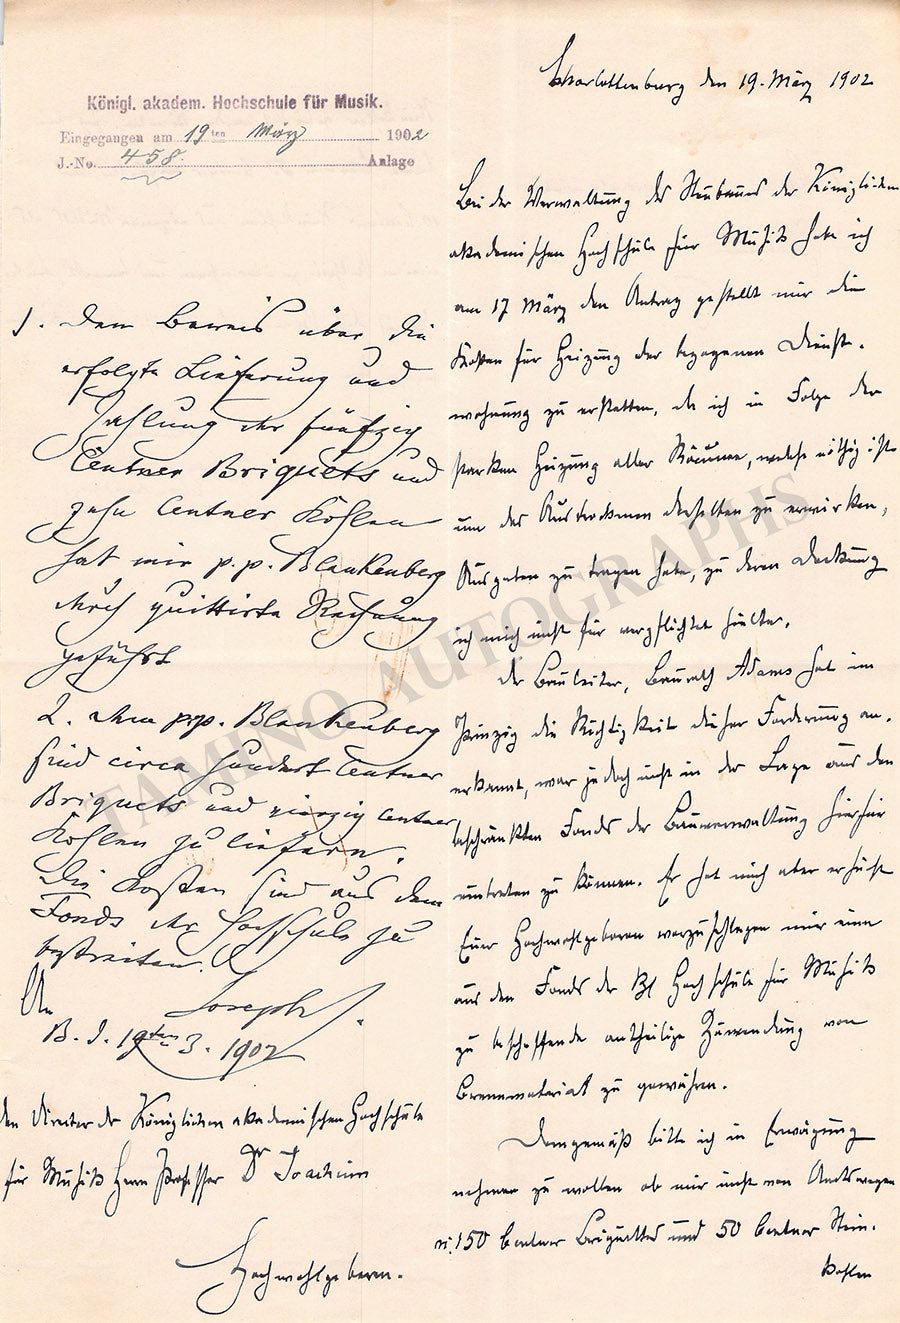 Königl. akadem. Hochschule für Musik.
Eingegangen am 19ten März 1902
J.-No. 458. Anlage
1. Den Beweis über die
erfolgte Lieferung und
Zahlung der fünfzig
Centner Briquets und
zehn Centner Kohlen
hat mir p.p. Blankenberg
durch quittirte Rechnung
geführt
2. Dem p.p. Blankenberg
sind circa hundert Centner
Briquets und vierzig Centner
Kohlen zu liefern.
Die Kosten sind aus dem
Fonds der Hochschule zu
bestreiten.
Joseph J.
B. d. 19ten 3. 1902
An
den Director der Königlichen akademischen Hochschule
für Musik Herrn Professor Dr Joachim
Hochwohlgeboren.
Charlottenburg den 19. März 1902
Bei der Verwaltung des Neubaues der Königlichen
akademischen Hochschule für Musik habe ich
am 17 März den Antrag gestellt mir die
Kosten für Heizung der bezogenen Dienst-
wohnung zu erstatten, da ich in Folge der
starken Heizung aller Räume, welche nöthig ist
um das Austrocknen derselben zu erwirken,
Ausgaben zu tragen habe, zu deren Deckung
ich mich nicht für verpflichtet halte.
Der Bauleiter, Baurath Adams hat im
Prinzip die Richtigkeit dieser Forderung an-
erkannt, war jedoch nicht in der Lage aus den
beschränkten Fonds der Bauverwaltung hierfür
eintreten zu können. Er hat mich aber ersucht
Euer Hochwohlgeboren vorzuschlagen mir eine
aus den Fonds der Kgl Hochschule für Musik
zu beschaffende antheilige Zuwendung von
Brennmaterial zu gewähren.
Demgemäß bitte ich in Erwägung
nehmen zu wollen ob mir nicht von Amtswegen
150 Centner Briquettes und 50 Centner Stein-
kohlen
TAMINO AUTOGRAPHS